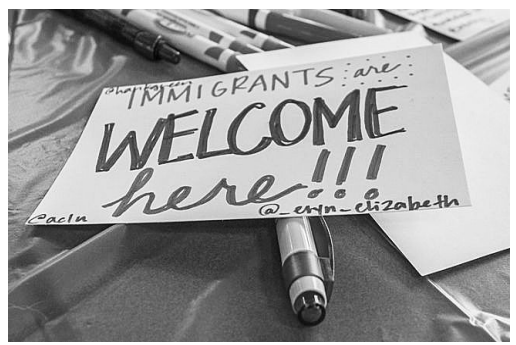 @hankgreen
IMMIGRANTS are
WELCOME
here!!!
@aclu
@_eryn_elizabeth